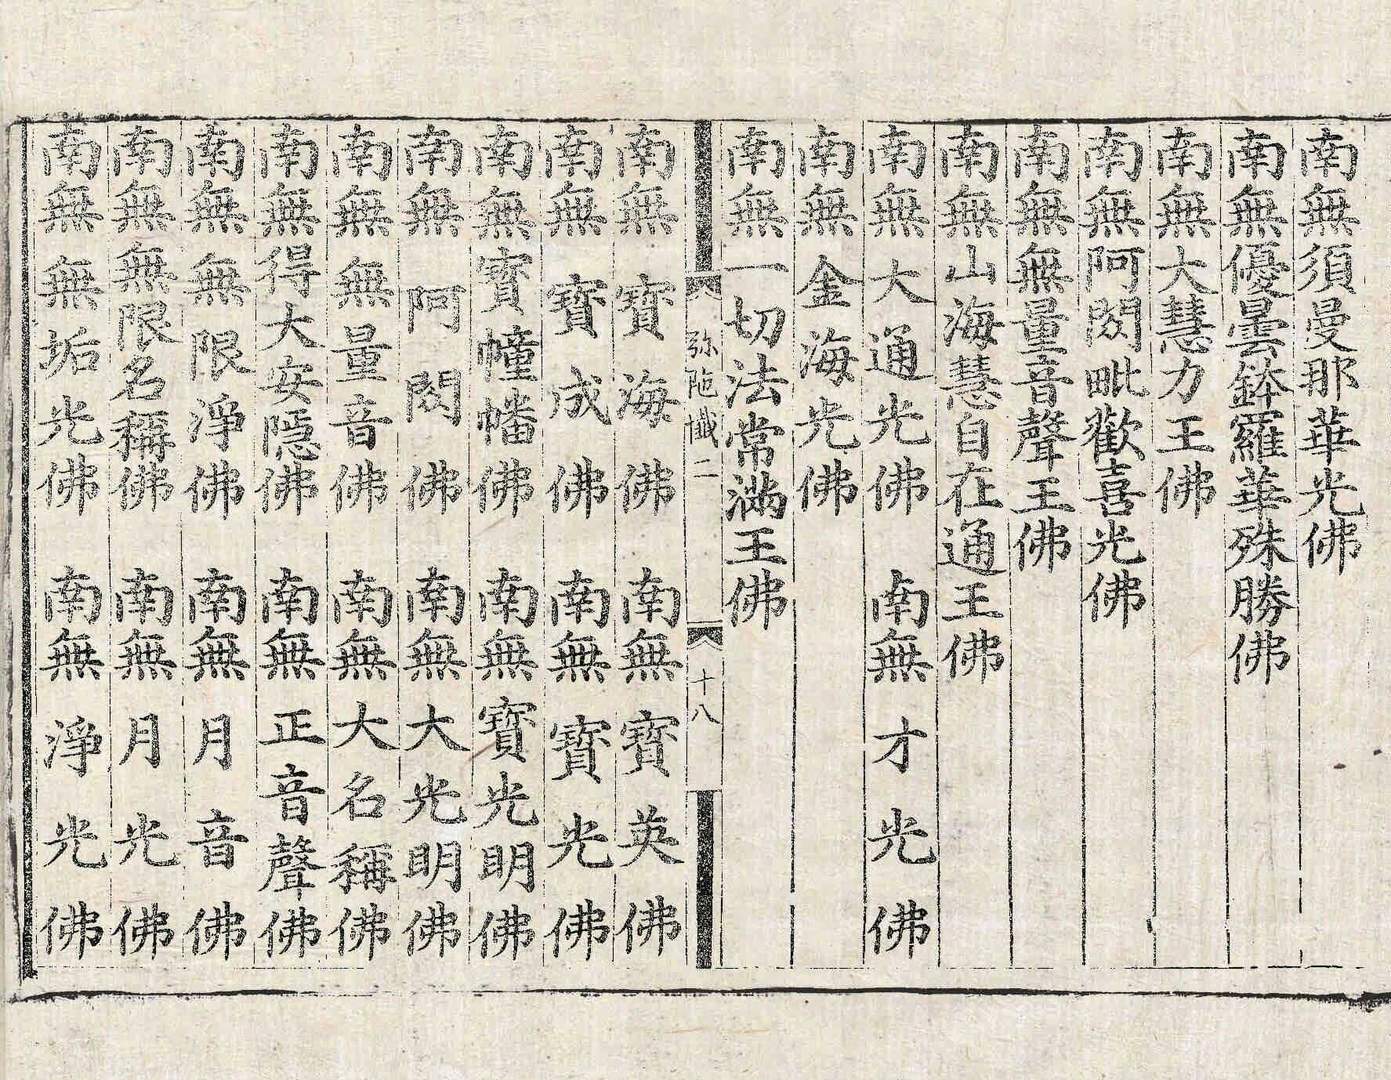 南無須曼那華光佛
南無優曇鉢羅華殊勝佛
南無大慧力王佛
南無阿閦毗歡喜光佛
南無無量音聲王佛
南無山海慧自在通王佛
南無大通光佛　南無才光佛
南無金海光佛
南無一切法常滿王佛
弥陁懺二　十八
南無寶海佛　南無寶英佛
南無寶成佛　南無寶光佛
南無寶幢幡佛　南無寶光明佛
南無阿閦佛　南無大光明佛
南無無量音佛　南無大名稱佛
南無得大安隱佛　南無正音聲佛
南無無限淨佛　南無月音佛
南無無限名稱佛　南無月光佛
南無無垢光佛　南無淨光佛